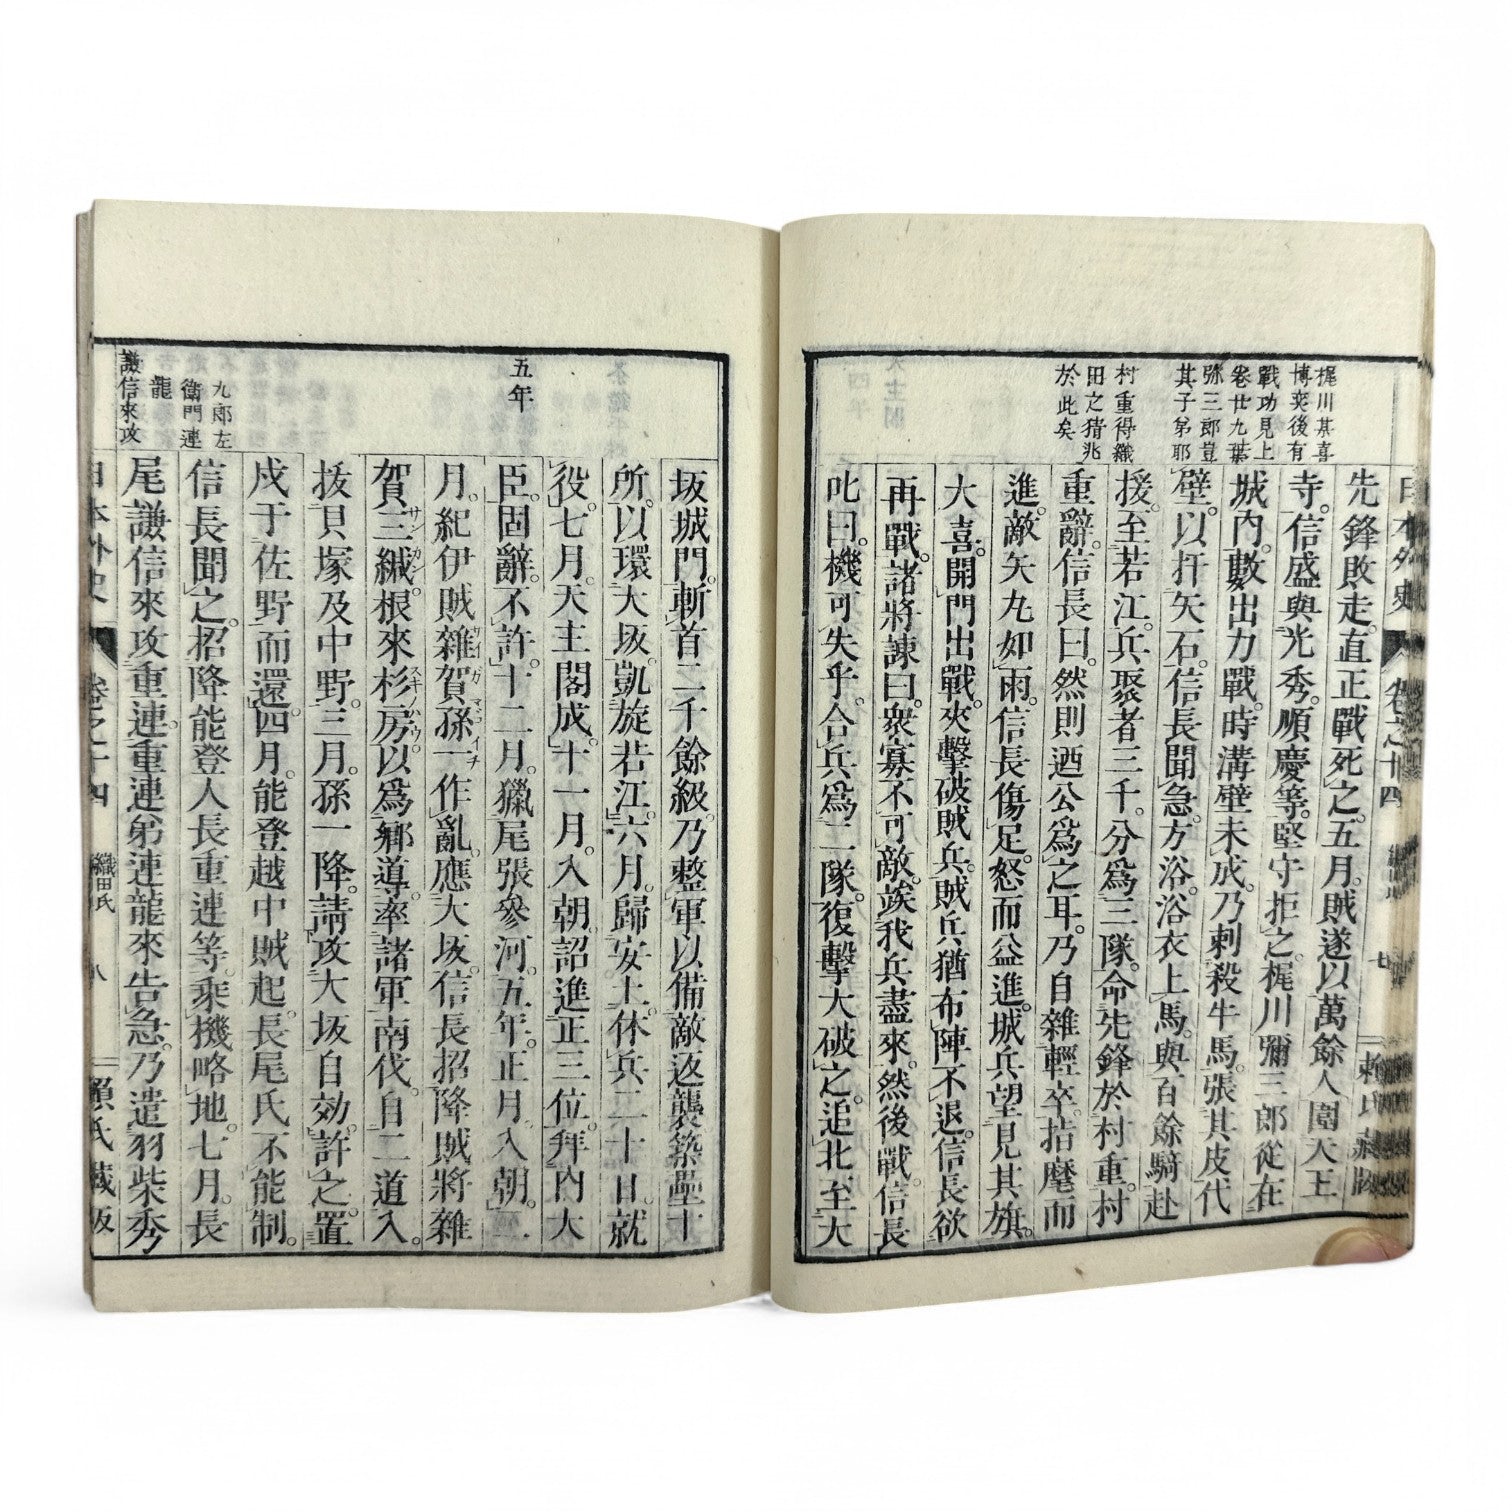 梶川甚喜
博奕後有
戰功見上
卷廿九葉
弥三郎豈
其子弟耶
村重得織
田之猜兆
於此矣
先鋒敗走。直正戰死之。五月。賊遂以萬餘人圍天王
寺。信盛與光秀。順慶等。堅守拒之。梶川彌三郎從在
城内。數出力戰。時溝壁未成。乃刺殺牛馬。張其皮代
壁。以扞矢石。信長聞急。方浴。浴衣上馬。與百餘騎赴
援。至若江。兵聚者三千。分爲三隊。命先鋒於村重。村
重辭。信長曰。然則迺公爲之耳。乃自雜輕卒。指麾而
進。敵矢丸如雨。信長傷足。怒而益進。城兵望見其旗。
大喜。開門出戰。夾擊破賊兵。賊兵猶布陣不退。信長欲
再戰。諸將諫曰。衆寡不可敵。竢我兵盡來。然後戰。信長
叱曰。機可失乎。合兵爲二隊。復擊大破之。追北至大
五年
九郎左
衛門連
龍
謙信來攻
坂城門。斬首二千餘級。乃整軍以備敵返襲。築壘十
所。以環大坂。凱旋若江。六月。歸安土。休兵二十日。就
役。七月。天主閣成。十一月。入朝。詔進正三位。拜内大
臣。固辭。不許。十二月。獵尾張參河。五年。正月。入朝。二
月。紀伊賊雜賀孫一作亂。應大坂。信長招降賊將雜
サイガ マゴイチ
賀三緘。根來杉房以爲鄉導。率諸軍南伐。自二道入。
サンカン スギノバウ
拔貝塚及中野。三月。孫一降。請攻大坂自効。許之。置
戍于佐野而還。四月。能登越中賊起。長尾氏不能制。
信長聞之。招降能登人長重連等。乘機略地。七月。長
尾謙信來攻重連。重連弟連龍來告急。乃遣羽柴秀
日本外史
卷之十四
織田氏
八
賴氏藏版